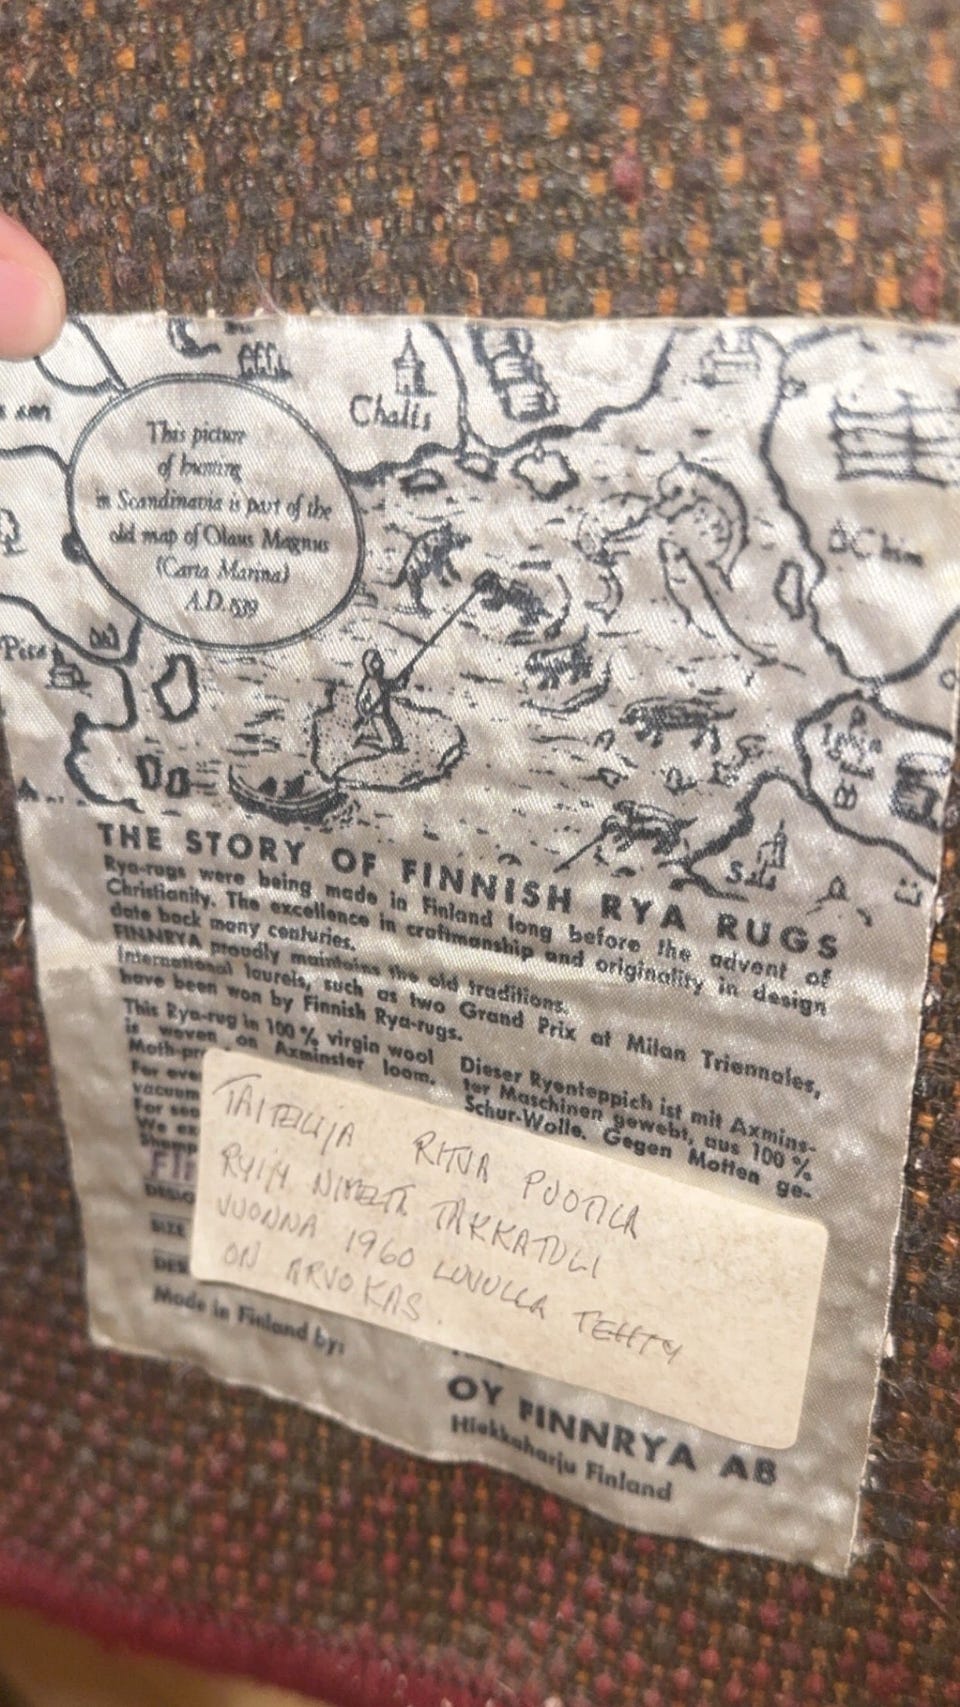 Chalis
This picture
of hunting
in Scandinavia is part of the
old map of Olaus Magnus
(Carta Marina)
A.D. 1539
THE STORY OF FINNISH RYA RUGS
Rya-rugs were being made in Finland long before the advent of
Christianity. The excellence in craftmanship and originality in design
date back many centuries.
FINNRYA proudly maintains the old traditions.
International laurels, such as two Grand Prix at Milan Triennales,
have been won by Finnish Rya-rugs.
This Rya-rug in 100 % virgin wool
is woven on Axminster loom.
Moth-pr
For eve
vacuum
For sea
We ex
Shamp
Dieser Ryenteppich ist mit Axmins-
ter Maschinen gewebt, aus 100 %
Schur-Wolle. Gegen Motten ge-
TAITEILIJA RITVA PUOTILA
RYIJY NIMELTÄ TAKKATULI
VUONNA 1960 LUVULLA TEHTY
ON ARVOKAS.
DESIG
SIZE
DES
Made in Finland by:
OY FINNRYA AB
Hiekkaharju Finland